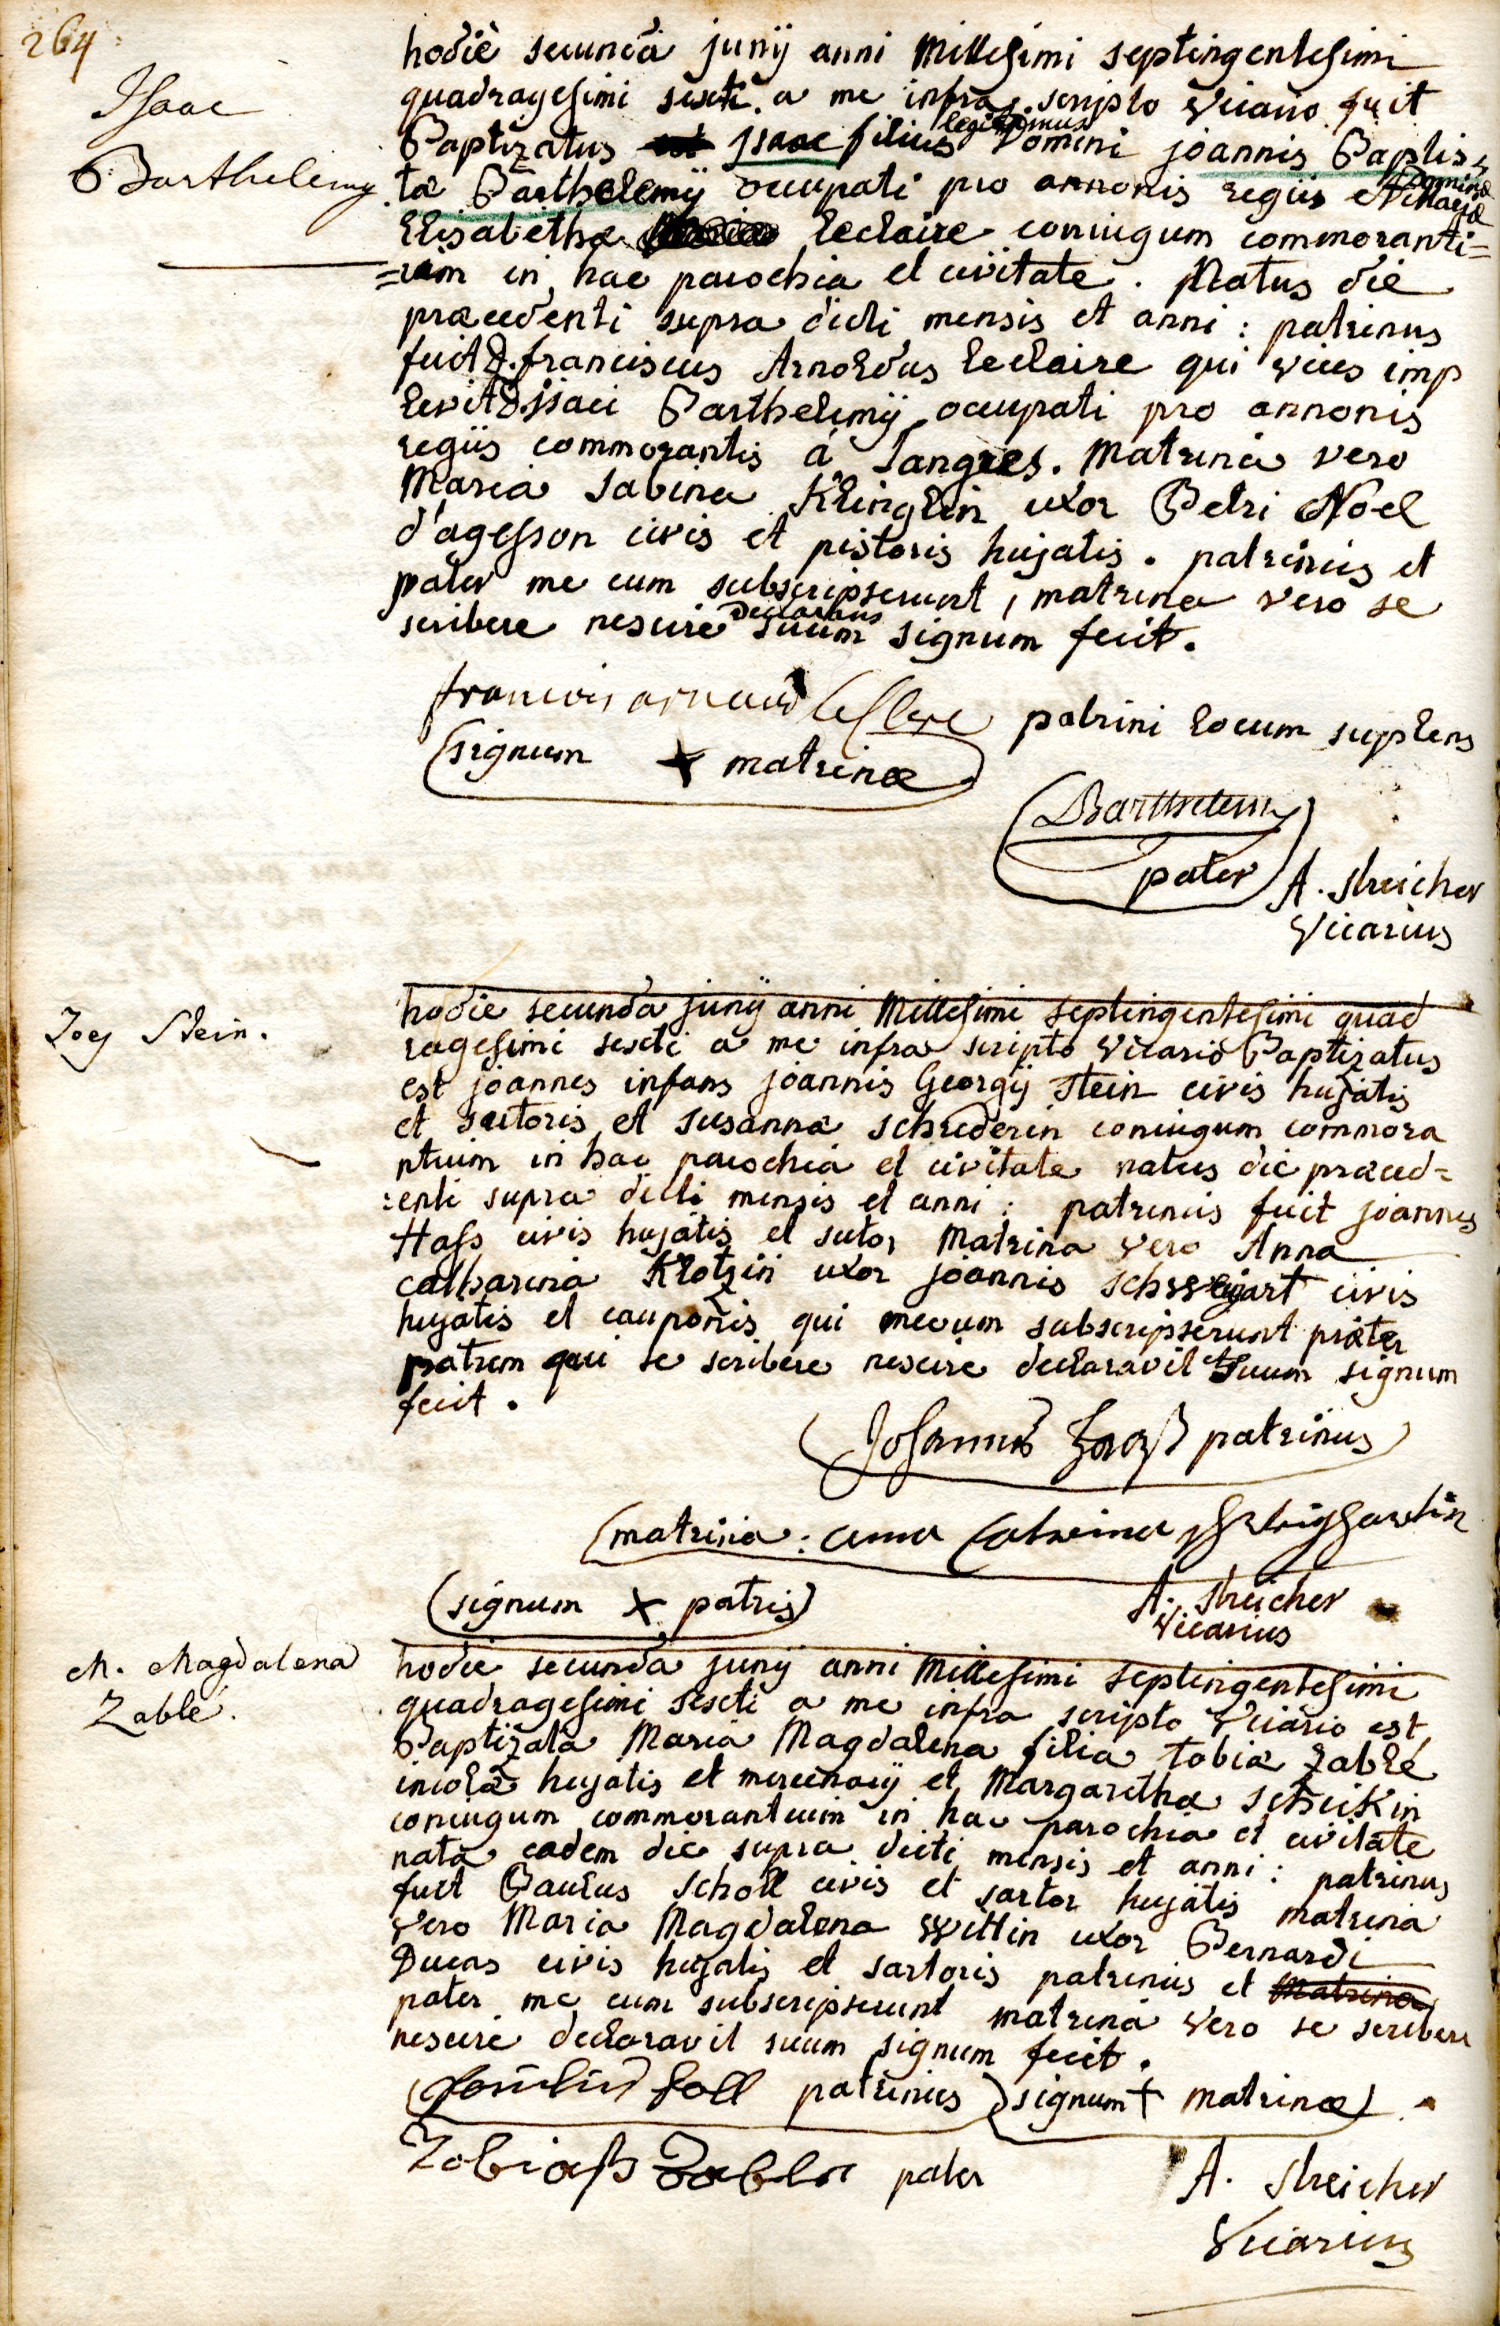 264
Isaac
Barthelemy
hodiè secunda junij anni Millesimi septingentesimi
quadragesimi sexti a me infra scripto vicario fuit
Baptizatus Isaac filius legitimus Domini joannis Baptis
tæ Barthelemij occupati pro annonis regiis et Dominæ Mariæ
Elisabethæ Leclaire coniugum commoranti=
=um in hac parochia et civitate. Natus die
præcedenti supra dicti mensis et anni: patrinus
fuit D. franciscus Arnoldus Leclaire qui vices imp
levit D. isaci Barthelemij occupati pro annonis
regiis commorantis à Langres. Matrina vero
Maria Sabina Klinglin uxor Petri Noel
d'agesson civis et pistoris hujatis. patrinus et
pater me cum subscripserunt, matrina vero se
scribere nescire declarans suum signum fecit.
francois arnaud leclere patrini locum suplens
signum x matrinæ
Barthelemy
pater
A. Streicher
Vicarius
Joes Stein.
hodie secunda junij anni Millesimi septingentesimi quad
ragesimi sexti a me infra scripto vicario Baptizatus
est joannes infans joannis Georgij Stein civis hujatis
et sutoris et Susannæ Schrederin coniugum commora
ntium in hac parochia et civitate natus die præced=
=enti supra dicti mensis et anni: patrinus fuit joannes
Hass civis hujatis et sutor Matrina vero Anna
catharina Klotzin uxor joannis Schweijart civis
hujatis et cauponis qui mecum subscripserunt præter
patrem qui se scribere nescire declaravit et suum signum
fecit.
Johannes Haaß patrinus
matrina: anna Catreina
signum x patris
A. Streicher
Vicarius
M. Magdalena
Zablé.
hodie secunda junij anni Millesimi septingentesimi
quadragesimi sexti a me infra scripto Vicario est
Baptizata Maria Magdalena filia tobiæ Zablé
incolæ hujatis et mercenarij et Margarethæ Scheikin
coniugum commorantium in hac parochia et civitate
nata eadem die supra dicti mensis et anni: patrinus
fuit Paulus Scholl civis et sartor hujatis matrina
vero Maria Magdalena Wittin uxor Bernardi
Ducas civis hujatis et sartoris patrinus et Matrina
pater me cum subscripserunt matrina vero se scribere
nescire declaravit suum signum fecit.
soll patrinus signum + matrinæ
Tobiaß Zable pater
A. Streicher
Vicarius